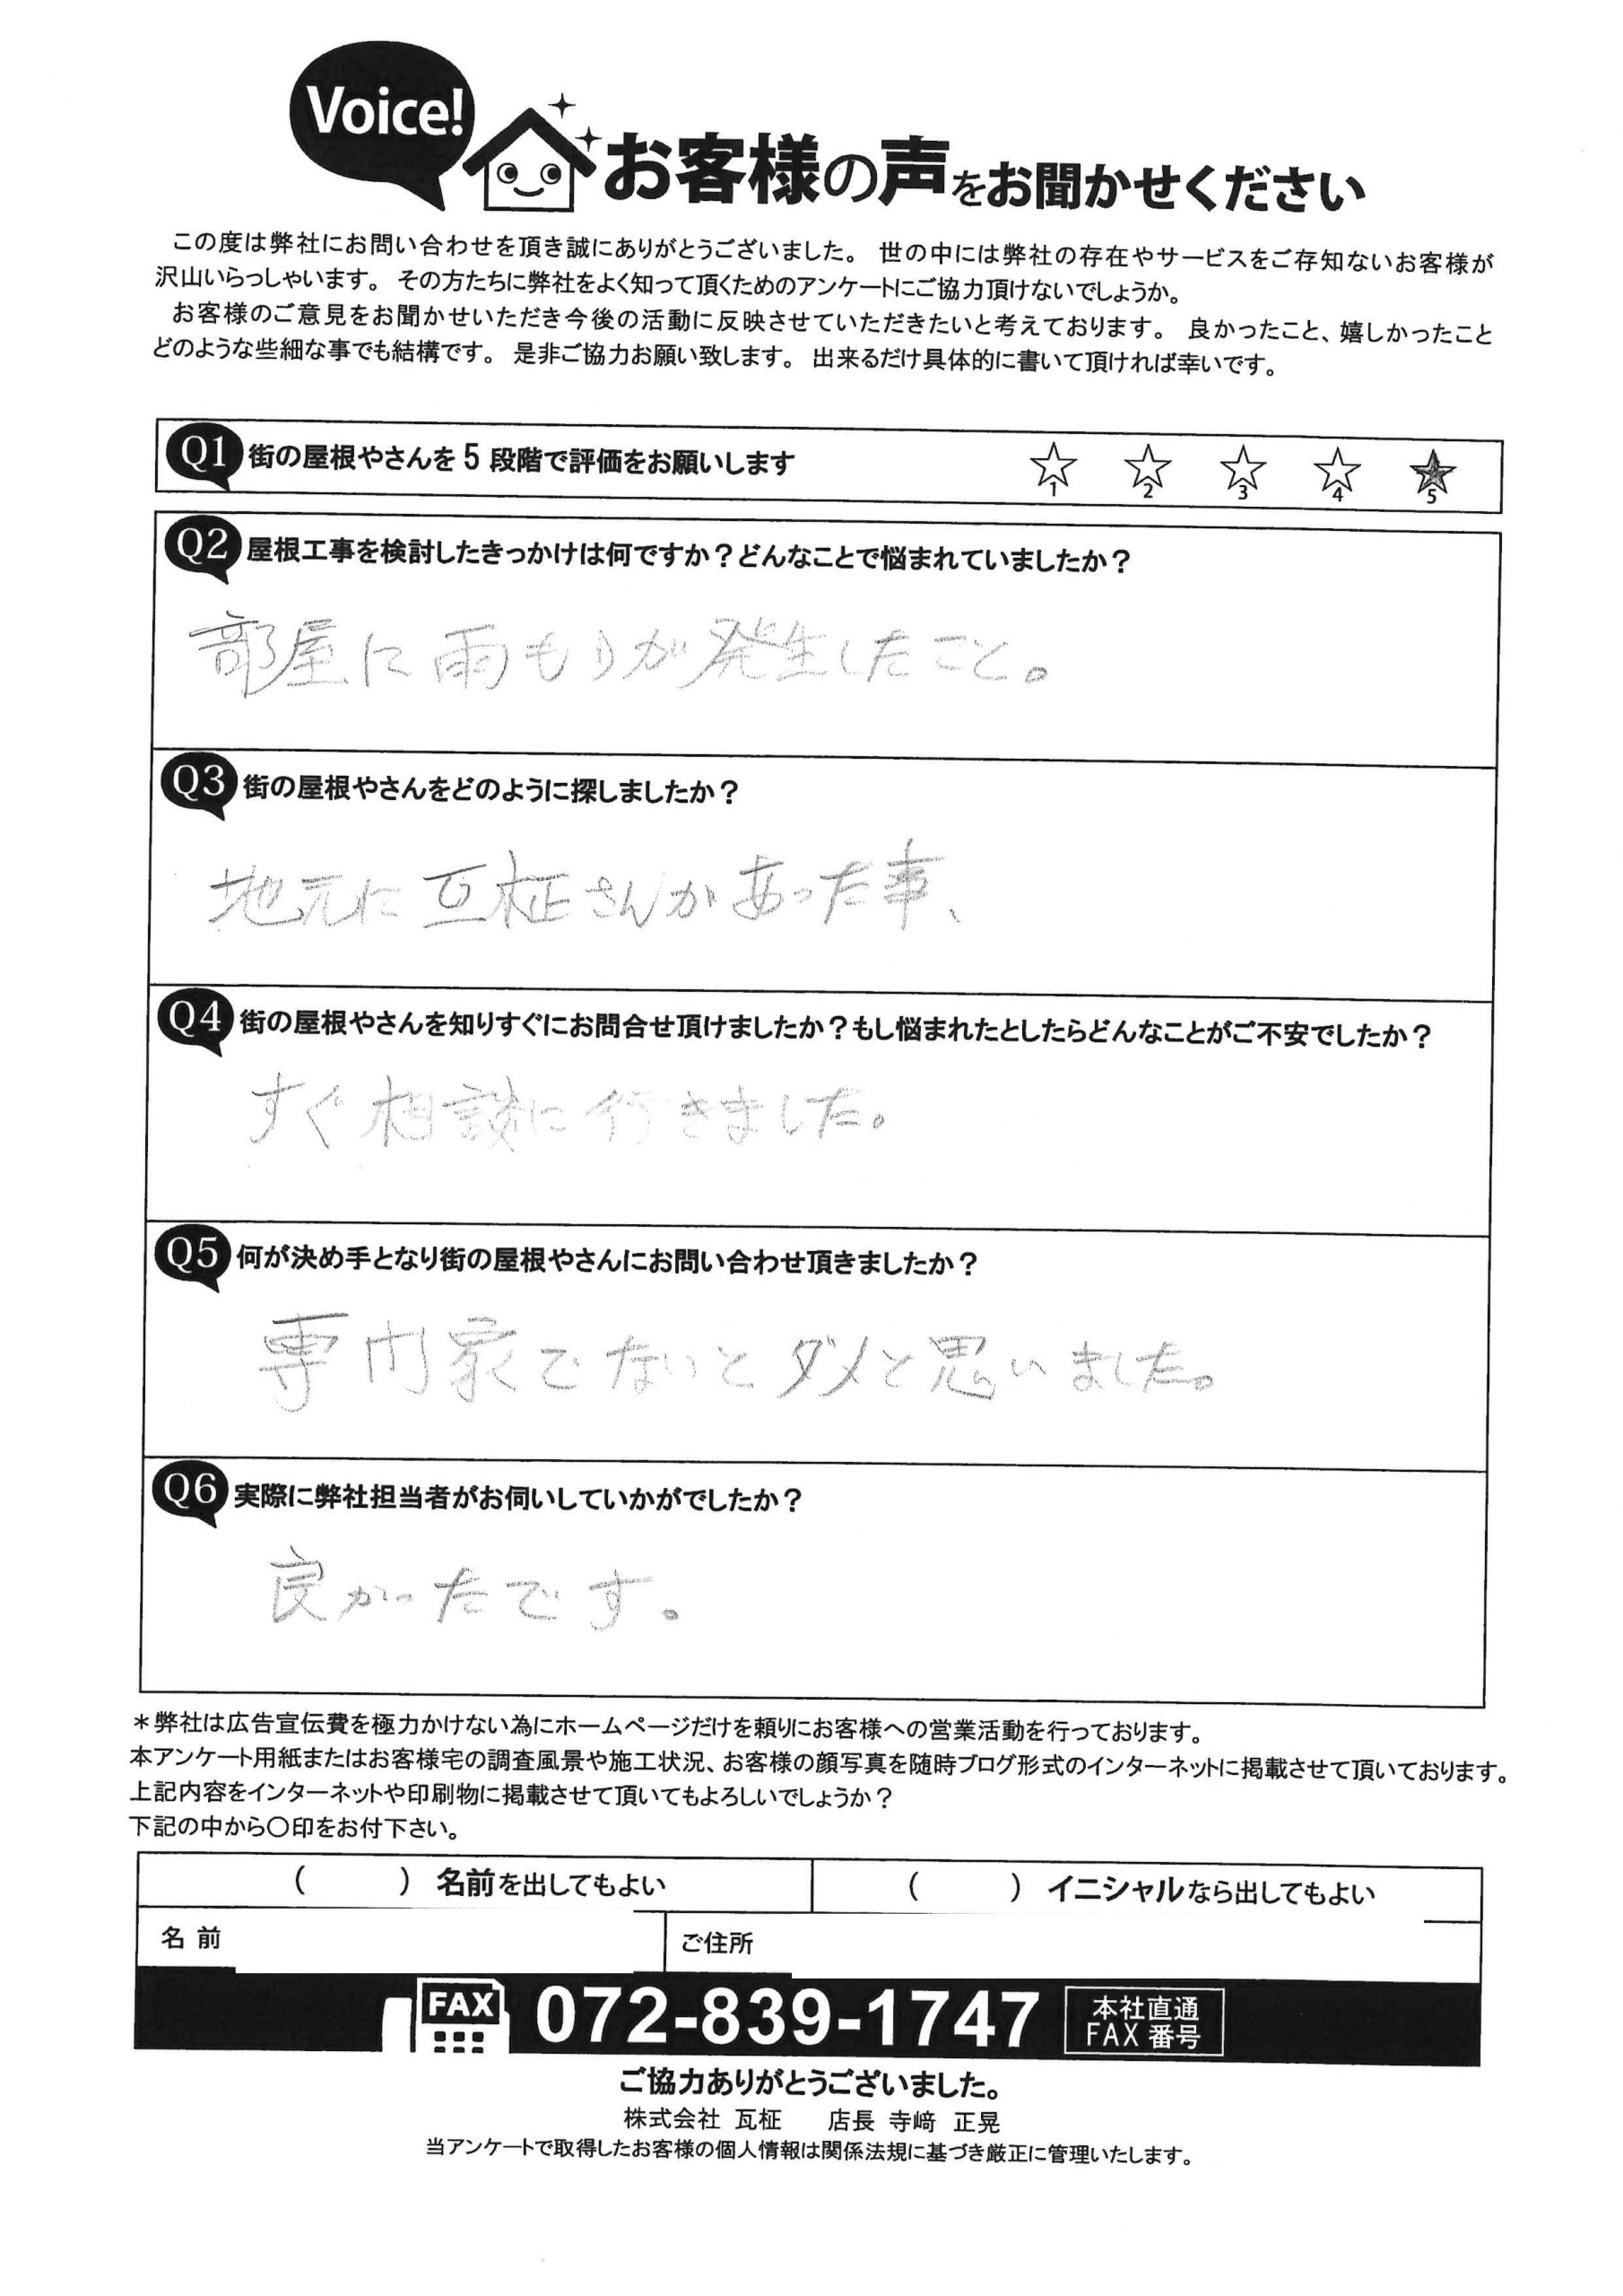 Voice!
お客様の声をお聞かせください
この度は弊社にお問い合わせを頂き誠にありがとうございました。 世の中には弊社の存在やサービスをご存知ないお客様が
沢山いらっしゃいます。 その方たちに弊社をよく知って頂くためのアンケートにご協力頂けないでしょうか。
お客様のご意見をお聞かせいただき今後の活動に反映させていただきたいと考えております。 良かったこと、嬉しかったこと
どのような些細な事でも結構です。 是非ご協力お願い致します。 出来るだけ具体的に書いて頂ければ幸いです。
Q1 街の屋根やさんを 5 段階で評価をお願いします ☆1 ☆2 ☆3 ☆4 ★5
Q2 屋根工事を検討したきっかけは何ですか？どんなことで悩まれていましたか？
部屋に雨もりが発生したこと。
Q3 街の屋根やさんをどのように探しましたか？
地元に瓦柾さんがあった事、
Q4 街の屋根やさんを知りすぐにお問合せ頂けましたか？もし悩まれたとしたらどんなことがご不安でしたか？
すぐ相談に行きました。
Q5 何が決め手となり街の屋根やさんにお問い合わせ頂きましたか？
専門家でないとダメと思いました。
Q6 実際に弊社担当者がお伺いしていかがでしたか？
良かったです。
＊弊社は広告宣伝費を極力かけない為にホームページだけを頼りにお客様への営業活動を行っております。
本アンケート用紙またはお客様宅の調査風景や施工状況、お客様の顔写真を随時ブログ形式のインターネットに掲載させて頂いております。
上記内容をインターネットや印刷物に掲載させて頂いてもよろしいでしょうか？
下記の中から〇印をお付下さい。
（　　　）名前を出してもよい （　　　）イニシャルなら出してもよい
名 前 ご住所
FAX 072-839-1747 本社直通
FAX 番号
ご協力ありがとうございました。
株式会社 瓦柾 店長 寺﨑 正晃
当アンケートで取得したお客様の個人情報は関係法規に基づき厳正に管理いたします。